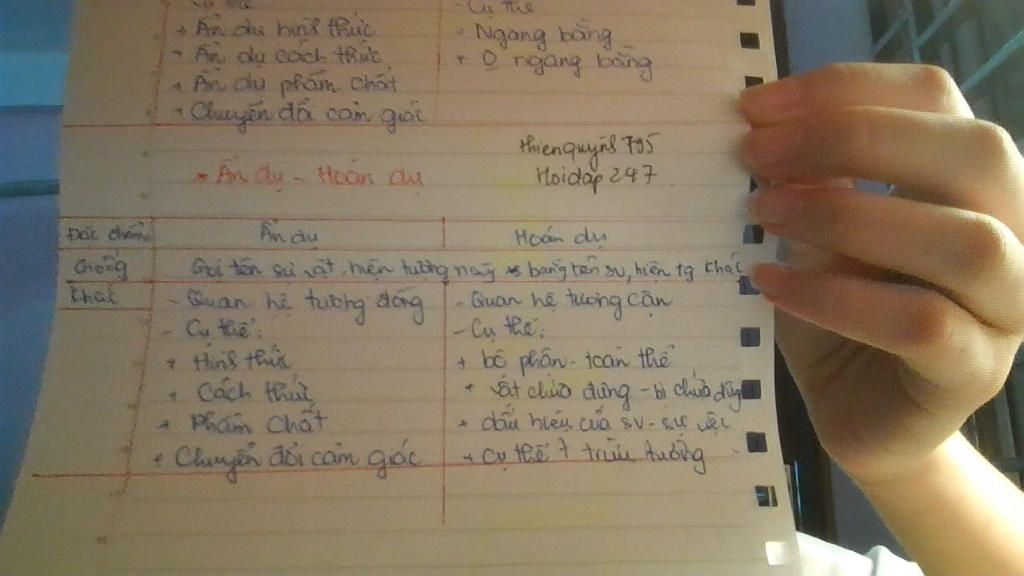 - Cụ thể
+ Ẩn dụ hình thức
+ Ẩn dụ cách thức
+ Ẩn dụ phẩm chất
+ Chuyển đổi cảm giác
+ Ngang bằng
+ O ngang bằng
thienquynh795
Hoidap247
* Ẩn dụ - Hoán dụ
Đặc điểm Ẩn dụ Hoán dụ
Giống Gọi tên sự vật, hiện tượng này bằng tên sv, hiện tg khác
Khác - Quan hệ tương đồng - Quan hệ tương cận
- Cụ thể: - Cụ thể:
+ Hình thức + bộ phận - toàn thể
+ Cách thức + vật chứa đựng - bị chứa đựng
+ Phẩm chất + dấu hiệu của sv - sự việc
+ Chuyển đổi cảm giác + cụ thể + trừu tượng